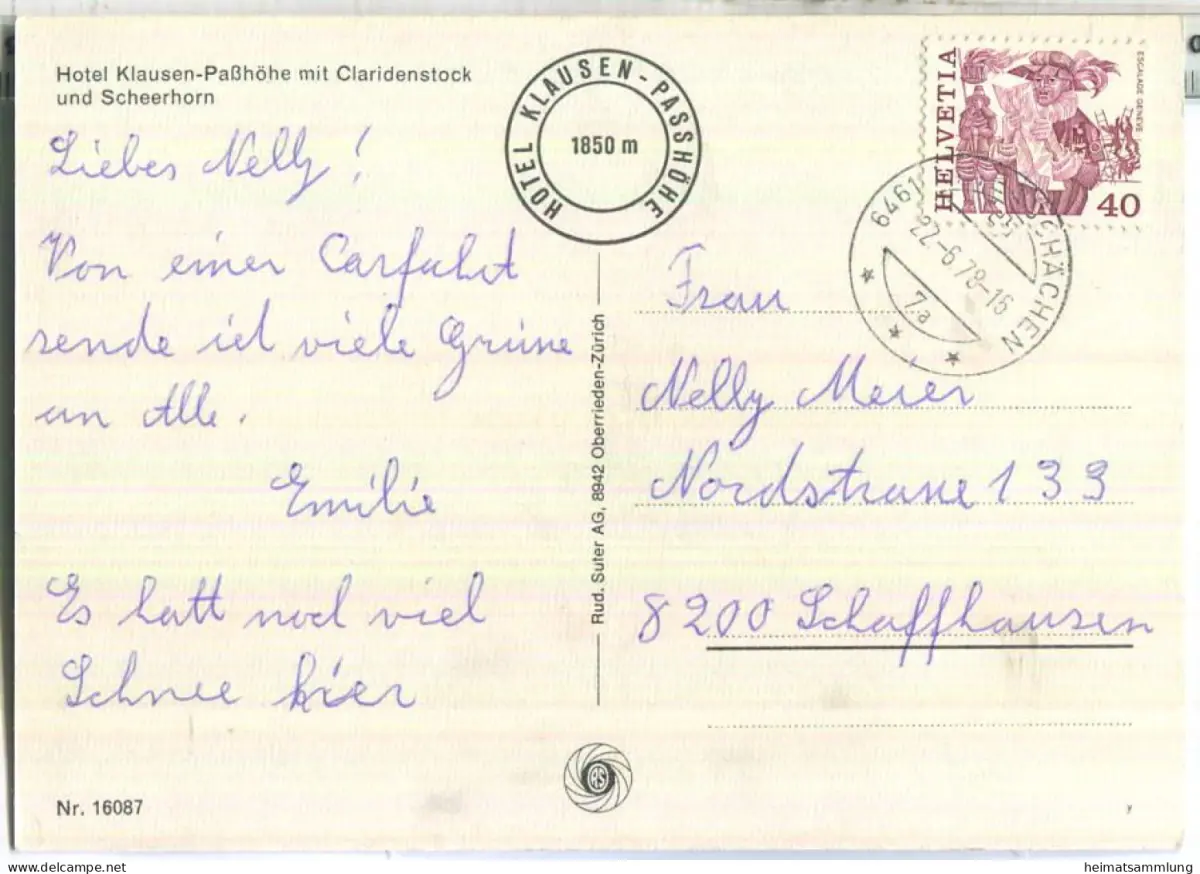 Hotel Klausen-Paßhöhe mit Claridenstock
und Scheerhorn
HOTEL KLAUSEN-PASSHÖHE
1850 m
HELVETIA
ESCALADE GENÈVE
40
6461
SCHÄCHEN
1979
22.-6.79-16
7.a
Liebes Nelly!
Von einer Carfahrt
sende ich viele Grüsse
an Alle.
Emilie
Es hatt noch viel
Schnee hier
Rud. Suter AG, 8942 Oberrieden-Zürich
Frau
Nelly Meier
Nordstrasse 133
8200 Schaffhausen
RS
Nr. 16087
heimatsammlung.de